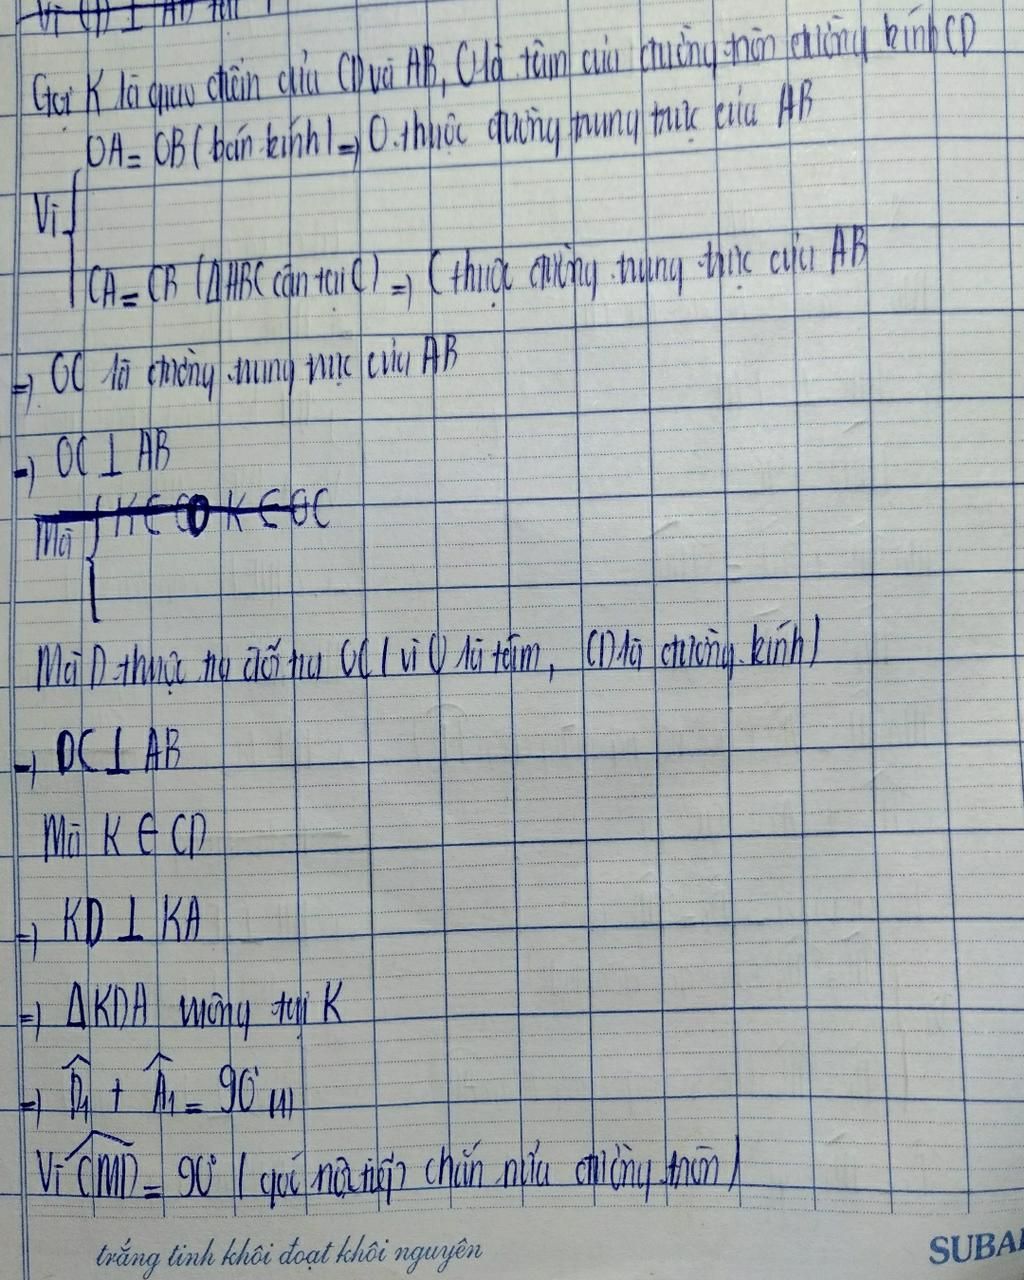 Vì CD ⊥ AB tại
Gọi K là giao điểm của CD và AB, O là tâm của đường tròn đường kính CD
OA = OB (bán kính) => O thuộc đường trung trực của AB
Vì {
CA = CB (ΔABC cân tại C) => C thuộc đường trung trực của AB
=> OC là đường trung trực của AB
=> OC ⊥ AB
Mà { K ∈ CD K ∈ OC
Mà D thuộc tia đối tia OC (vì O là tâm, CD là đường kính)
=> DC ⊥ AB
Mà K ∈ CD
=> KD ⊥ KA
=> ΔKDA vuông tại K
=> D̂₁ + Â₁ = 90° (1)
Vì ĈMD = 90° (góc nội tiếp chắn nửa đường tròn)
trắng tinh khôi đoạt khôi nguyên